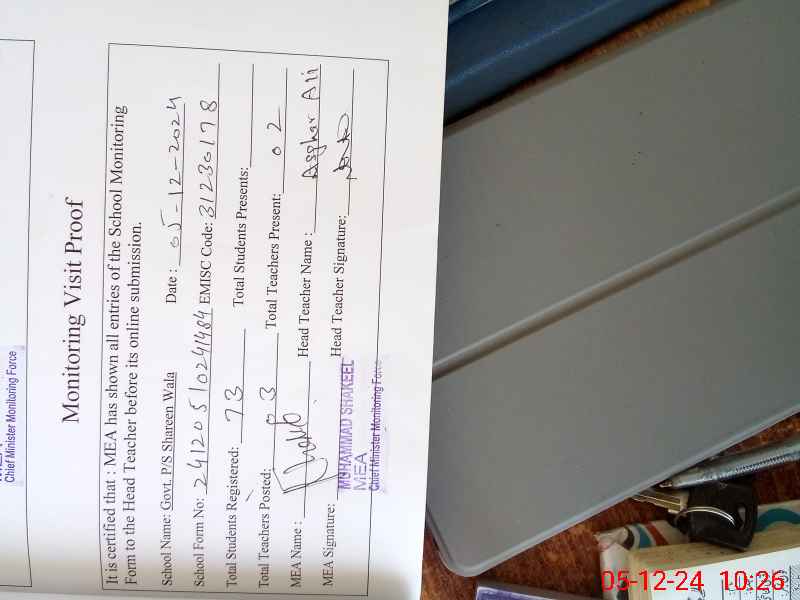 Chief Minister Monitoring Force
Monitoring Visit Proof
It is certified that : MEA has shown all entries of the School Monitoring
Form to the Head Teacher before its online submission.
School Name: Govt. P/S Shareen Wala Date : 05-12-2024
School Form No: 24120510241484 EMISC Code: 31230178
Total Students Registered: 73 Total Students Presents:
Total Teachers Posted: 03 Total Teachers Present: 02
MEA Name : Head Teacher Name : Asghar Ali
MEA Signature: Head Teacher Signature:
MUHAMMAD SHAKEEL
MEA
Chief Minister Monitoring Force
05-12-24 10:26